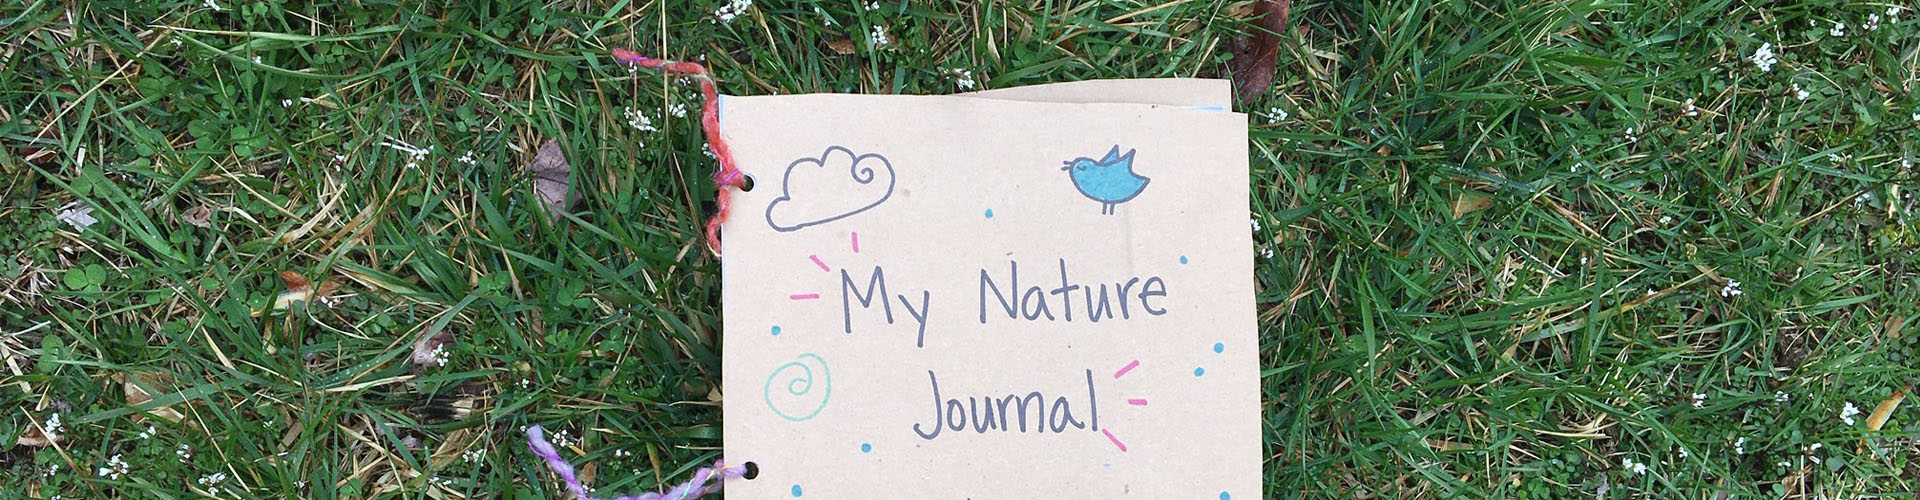 My Nature
Journal